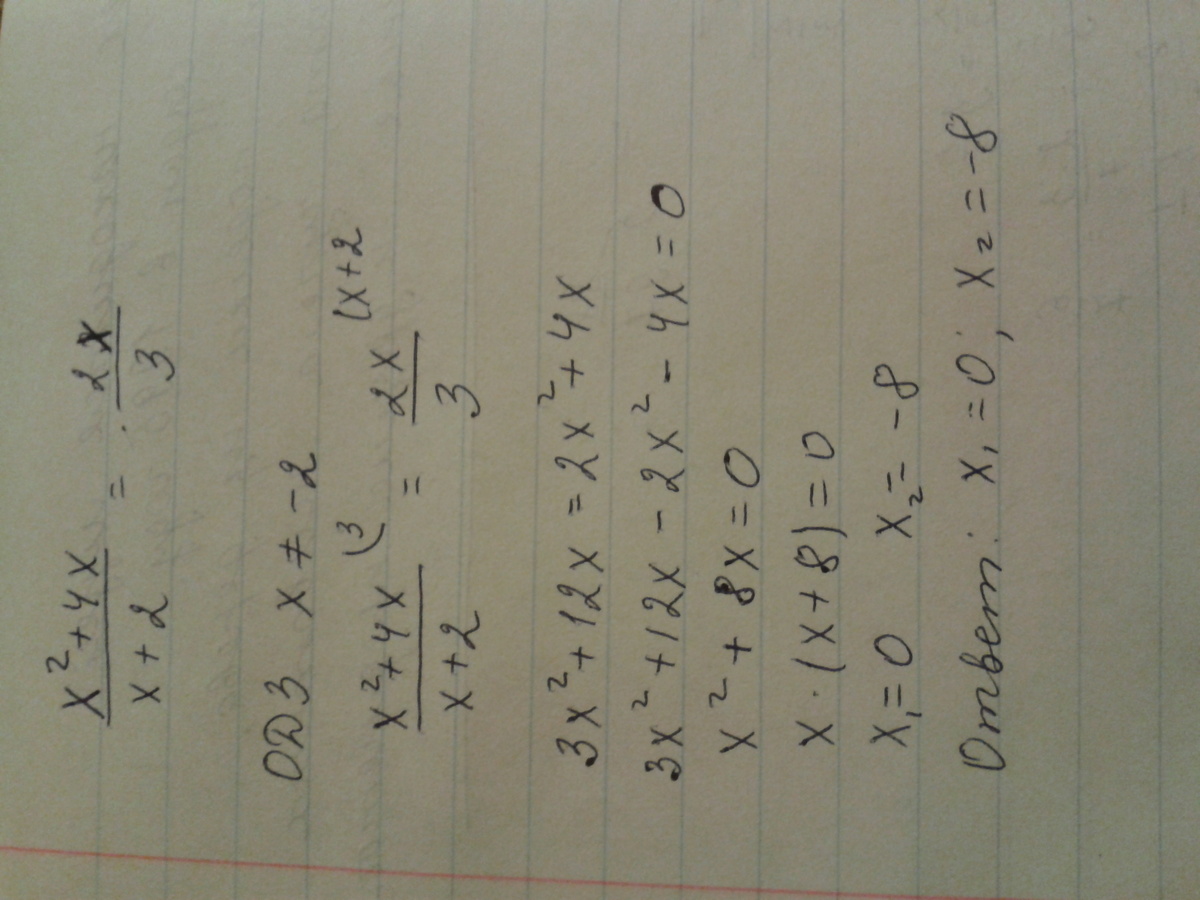 x²+4x / x+2 = 2x / 3
ОДЗ x ≠ -2
x²+4x (3 / x+2 = 2x (x+2 / 3
3x²+12x = 2x²+4x
3x²+12x - 2x² - 4x = 0
x² + 8x = 0
x · (x+8) = 0
x₁ = 0 x₂ = -8
Ответ: x₁ = 0; x₂ = -8